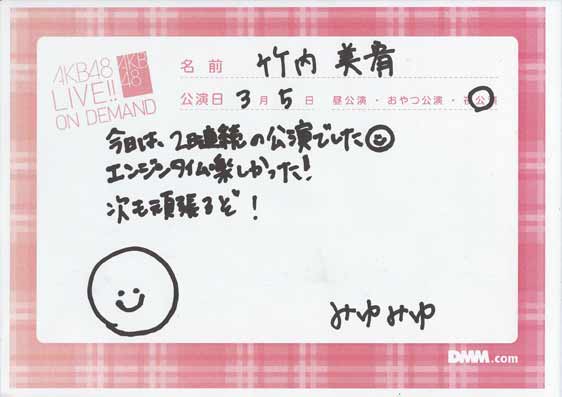 AKB48
LIVE!!
ON DEMAND
AKB
48
名前 竹内美宥
公演日 3月5日 昼公演・おやつ公演・夜公演
今日は、2日連続の公演でした
エンジンタイム楽しかった!
次も頑張るぞ!
みゆみゆ
DMM.com